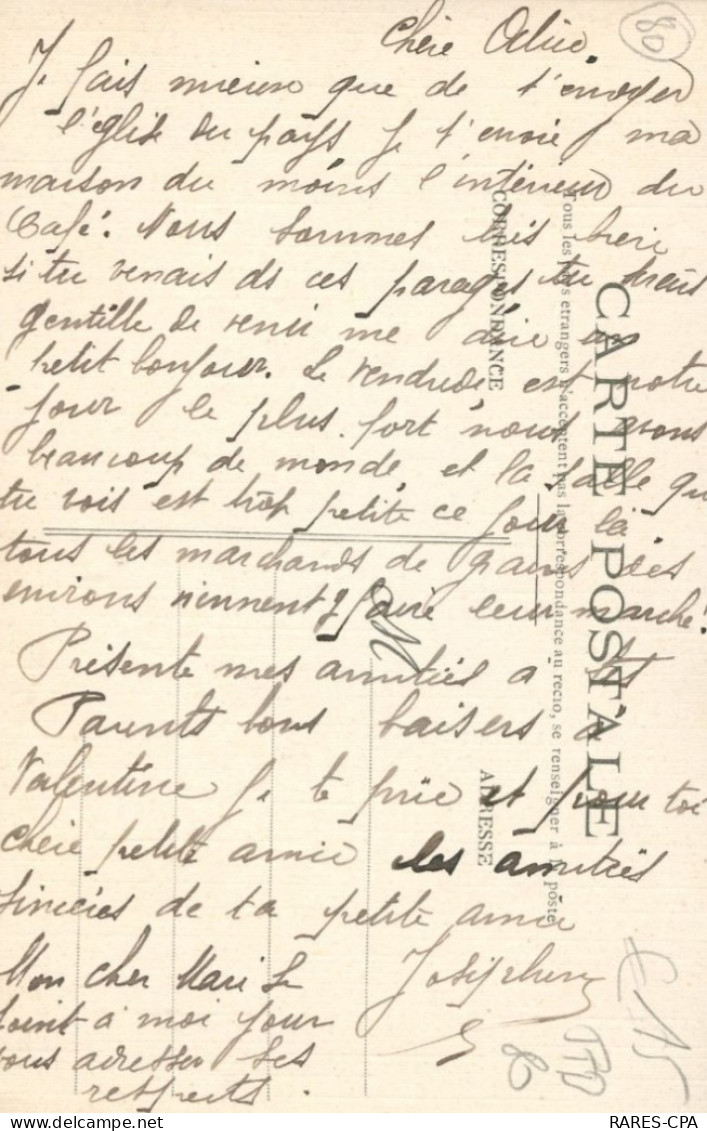 80
Chère Alice
Je fais mieux que de t'envoyer
l'église du pays je t'envoie ma
maison du moins l'intérieur du
Café. Nous sommes très bien
si tu venais ds ces parages tu serais
gentille de venir me dire un
petit bonjour. Le vendredi est notre
jour le plus fort nous avons
beaucoup de monde, et la salle que
tu vois est trop petite ce jour là
tous les marchands de grains des
environs viennent y faire leur marché.
Présente mes amitiés à tes
Parents bons baisers à
Valentine je te prie et pour toi
chère petite amie les amitiés
sincères de ta petite amie
Joséphine
Mon cher Mari se
joint à moi pour
vous adresser ses
respects.
CARTE POSTALE
Tous les pays etrangers n'acceptent pas la correspondance au recto, se renseigner à la poste
CORRESPONDANCE
ADRESSE
M
RARES-CPA